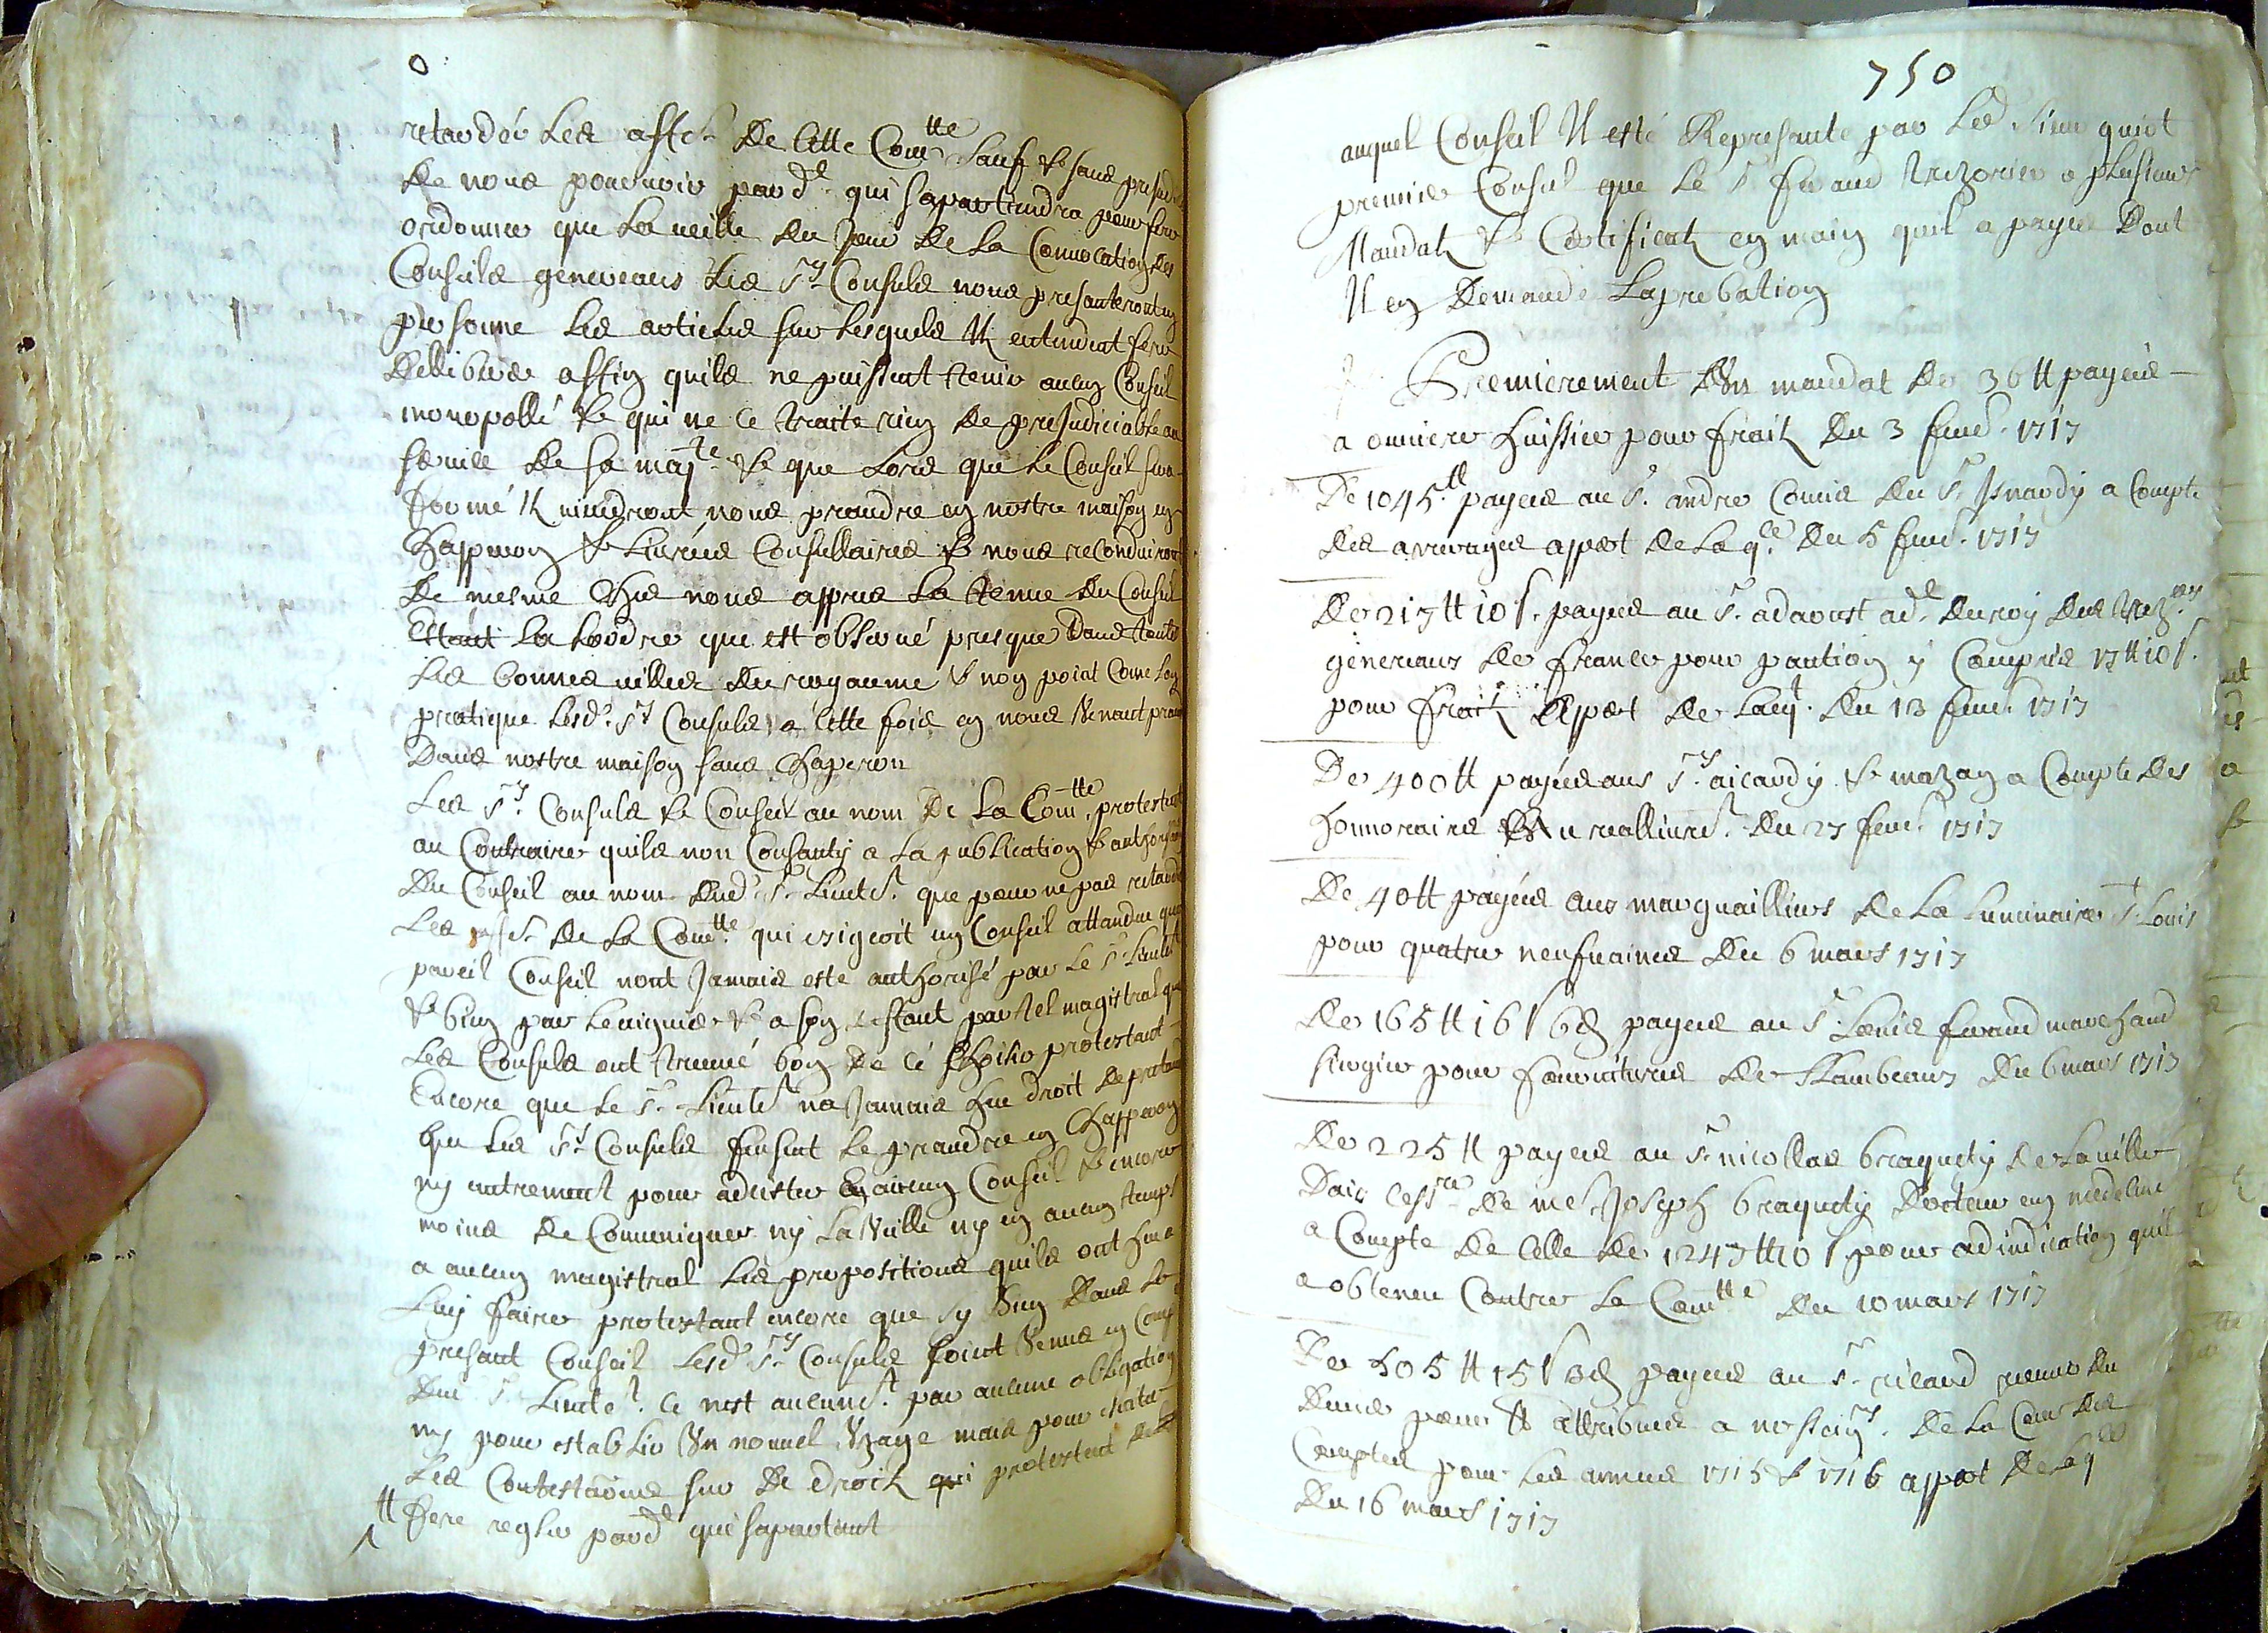 retarder les aff.es De Cette Com.tte Sauf & sans prejud.
De nous pourvoir pard.t qui sapartiendra pour fere
ordonner que la veille du Jour De la Convocation des
Conseils generaux les S.rs Consuls nous presanteront en
personne les articles sur lesquels Ilz entendent fere
Delliberer affin quils ne puissent tenir aucun Conseil
monopollé & qui ne ce traite rien De prejudiciable au
service De sa maj.te & que Lors que le Conseil sera
formé Ilz viendront nous prandre en nostre maison en
Chapperon & Livrées Consullaires & nous reconduiront
De mesme Chés nous appres la tenue Du Conseil
Estant la Lordre que est observé presque Dans toutes
Les bonnes villes Du royaume & non point Come lon
pratique Lesd. S.rs Consuls a Cette fois en nous Venant pran
Dans nostre maison sans Chaperon
Les S.rs Consuls & Conseil au nom De La Com.tte protestent
au Contraire quils non Consanty a La publication & authori
Du Conseil au nom Dud. S.r Lieute.t que pour ne pas retarder
Les aff.es De La Com.tte qui exigeoit un Conseil attandu que
pareil Conseil nont Jamais esté authorisé par le S.r Lieute.t
& bien par Le viguier & a son deffaut par tel magistrat que
Les Consuls ont treuvé bon De Ce Choisir protestant
Encore que le S.r Lieute.t na Jamais heu droit De pretandre
que Les S.rs Consuls feusent le prandre en Chapperon
ny autrement pour adcister En aucun Conseil & encore
moins De Communiquer ny La Veille ny en aucun temps
a aucun magistrat Les propositions quils ont heu a
Luy faire protestant encore que sy bien Dans Le
presant Conseil Lesd. S.rs Consuls soint Venus en Comp
Du S.r Lieute.t Ce nest aucune.t par aucune obligation
ny pour establir Un nouvel Uzage mais pour eviter
Les Contestaōns sur De droit qui protestent De le
fere regler pard.t qui sapartient
750
auquel Conseil Il esté Represanté par Led. Sieur guiot
premier Consul que Le S.r feraud trezorier a plusieurs
Mandatz & Certificatz en main quil a payés Dont
Il en Demande Laprobation
Premierement Dun mandat De 36 tt payées
a ouviere huissier pour fraiz Du 3 fevr. 1717
De 1045 tt payées au S.r andre Comis Du S.r Isnardy a Compte
Des arrerages appert De La q.ce Du 5 fevr. 1717
De 217 tt 10 s. payées au S.r adaoust ad.t Du roy Des trez.rs
generaux De france pour pantion y Compris 17 tt 10 s.
pour fraitz Appert De La q.t Du 13 fevr. 1717
De 400 tt payées aux S.rs aicardy & mazan a Compte Des
honnoraires Du realliure.t Du 27 fevr. 1717
De 40 tt payées aux marguilliers De La Luminaire S.t Louis
pour quatre neufvaines Du 6 mars 1717
De 165 tt 16 s 6 d payées au S.r Louis feraud marchand
sirogier pour fournitures De flambeaux Du 6 mars 1717
De 225 tt payées au S.r nicollas braquety De La ville
Daix Cess.re De me. Joseph braquety Docteur en medeline
a Compte De Celle De 1247 tt 10 s pour adiudication quil
a obtenu Contre La Com.tte Du 10 mars 1717
De 505 tt 15 s 3 d payées au S.r ricaud receveur Du
Denier pour tt attribuées a nosseig.rs De La Cour Des
Comptes pour Les années 1715 & 1716 appert De La q.ce
Du 16 mars 1717